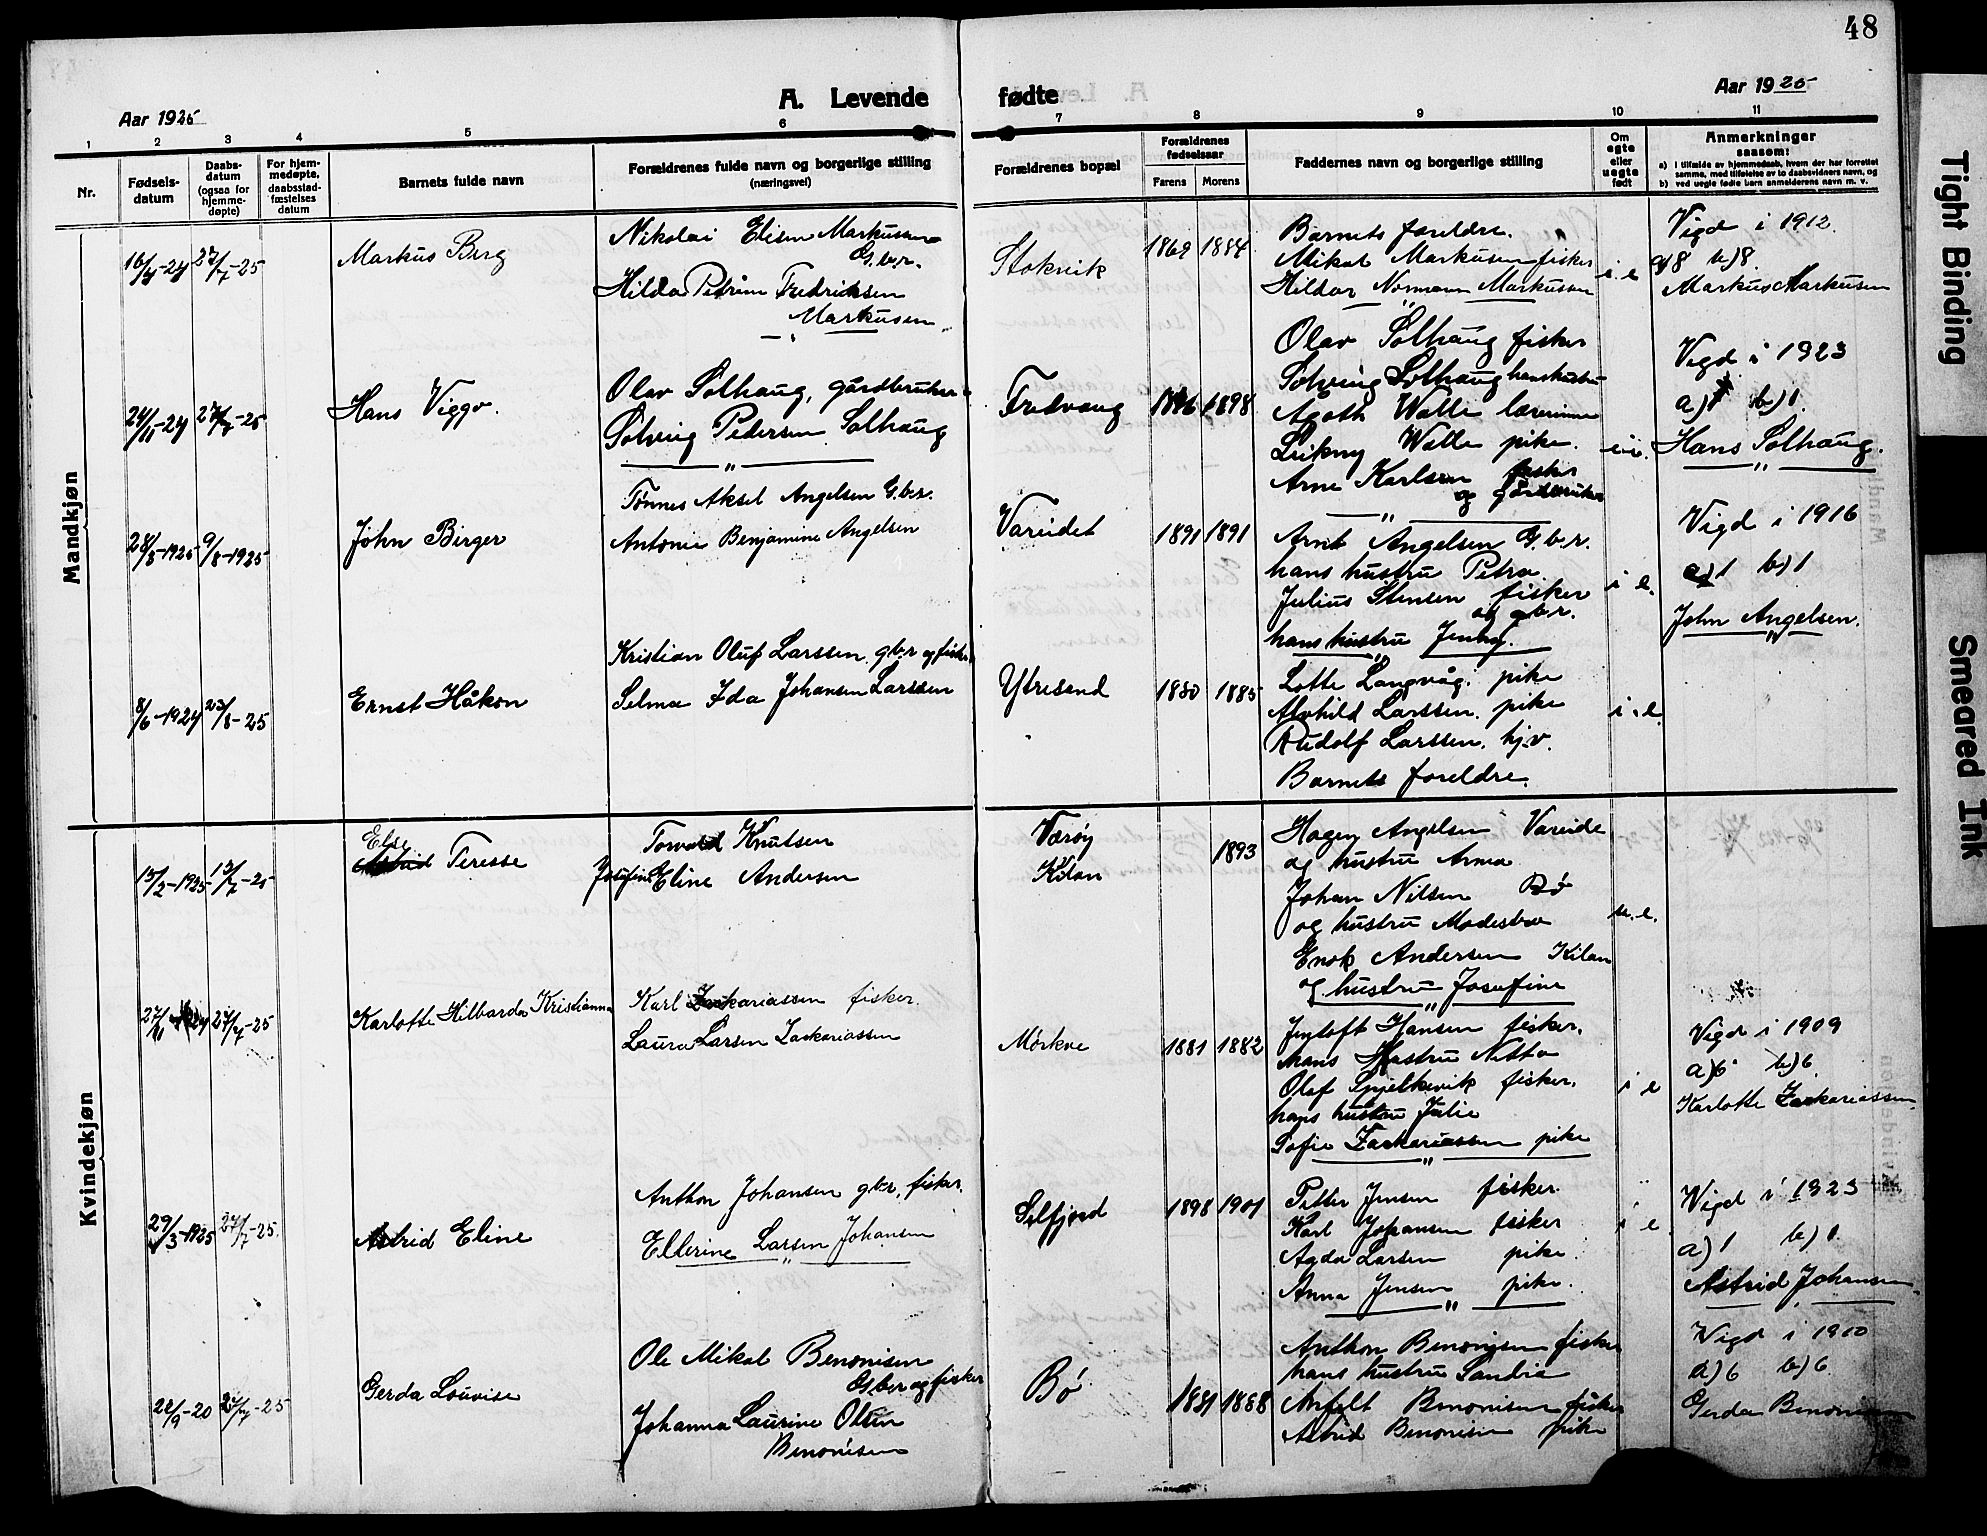 48
A. Levende fødte
Aar 1925
Aar 1925
1 2 3 4 5 6 7 8 9 10 11
Nr.
Fødsels-
datum
Daabs-
datum
(ogsaa for
hjemme-
døpte)
For hjem-
medøpte,
daabsstad-
fæstelses
datum
Barnets fulde navn
Forældrenes fulde navn og borgerlige stilling
(næringsvei)
Forældrenes bopæl
Forældrenes
fødselsaar
Farens Morens
Faddernes navn og borgerlige stilling
Om
egte
eller
uegte
født
Anmerkninger
saasom:
a) i tilfælde av hjemmedaab, hvem der har forrettet
samme, med tilføielse av to daabsvidners navn, og
b) ved uegte fødte barn anmelderens navn m. v.
Mandkjøn
16/4-24 27/7-25
Markus Berg
Nikolai Elisen Markussen
G.b.r.
Hilda Petrine Fredriksen
Markusen
Stokvik
1869 1884
Barnets foreldre.
Mikal Markusen fisker
Hildor Normann Markussen
i.e
Vigd i 1912.
a)8 b)8
Markus Markusen
24/11-24 27/7-25
Hans Viggo.
Olav Solhaug, gårdbruker
Solveig Pedersen Solhaug
Fredvang
1896 1898
Olav Solhaug fisker
Solveig Solhaug hans hustru
Agoth Walle lærerinne
Walle pike.
Arne Karlsen fisker
og gårdbruker
i.e.
Vigd i 1923
a)1 b)1
Hans Solhaug.
28/5-1925 9/8-1925
John Birger
Tønnes Aksel Angelsen G.b.r.
Antonie Benjamine Angelsen
Vareidet
1891 1891
Arnt Angelsen G.b.r.
hans hustru Petra
Julius Stensen fisker
og gb.r.
hans hustru Jenny.
i e.
Vigd i 1916
a)1 b)1
John Angelsen.
8/6-1924 23/8-25
Ernst Håkon
Kristian Oluf Larssen. gb.r og fisker
Selma Ida Johansen Larssen
Ytresand
1880 1885
Lotte Langvåg. pike
Alvhild Larssen. pike
Rudolf Larssen. hj.v.
Barnets foreldre.
i.e.
Kvindekjøn
15/2-1925 13/7-25
Else
Astrid Teresse
Torvald Knutsen
Josefine Eline Andersen
Værøy
Kilan
1893
Hagen Angelsen Vareide
og hustru Anna
Johan Nilsen Bø
og hustru Modesta
Enok Andersen Kilan
og hustru Josefine
u.e.
27/11-1924 27/7-25
Karlotte Hilbarda Kristianna
Karl Zackariassen fisker.
Laura Larsen Zackariassen
Mørkve
1881 1882
Jentoft Hansen fisker.
hans Hustru Netta
Olaf Spjelkevik fisker.
hans hustru Julie
Sofie Zackariassen pike
i e
Vigd i 1909
a)6 b)6
Karlotte Zackariassen
29/3-1925 27/7-25.
Astrid Eline
Anthon Johansen gb.r, fisker.
Ellerine Larsen Johansen
Selfjord
1898 1901
Petter Jensen fisker.
Karl Johansen fisker
Agda Larsen pike
Anna Jensen pike.
i e
Vigd i 1923
a)1 b)1.
Astrid Johansen
22/9-20 27/7-25
Gerda Lovise
Ole Mikal Benonisen
G.b.r og fisker
Johanna Laurine Olsen
Benonisen
Bø
1881 1888
Anthon Benonisen fisker
hans hustru Sandra
Benonisen fisker
Astrid Benonisen pike
Vigd i 1910
a)6 b)6
Gerda Benonisen
Tight Binding
Smeared Ink